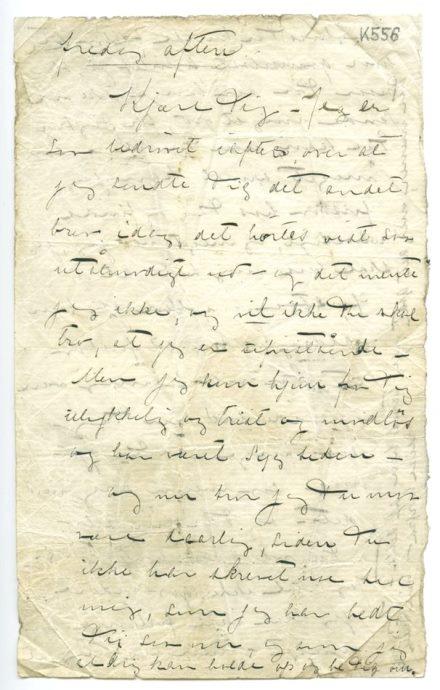 K556
fredag aften.
Kjære Dig – Jeg er
saa bedrøvet iaften over at
jeg sendte Dig det andet
brev idag, det hørtes vist saa
utaalmodigt ud – og det mente
jeg ikke, og vil ikke Du skal
tro, at jeg er
Men jeg kom hjem fra Dig
ulykkelig og trist og modløs
og har været syg siden –
og nu tror jeg Du maa
være daarlig, siden Du
ikke har skrevet noe til
mig, som jeg har bedt
Dig om, og som jeg
aldrig kan holde op og be Dig om.